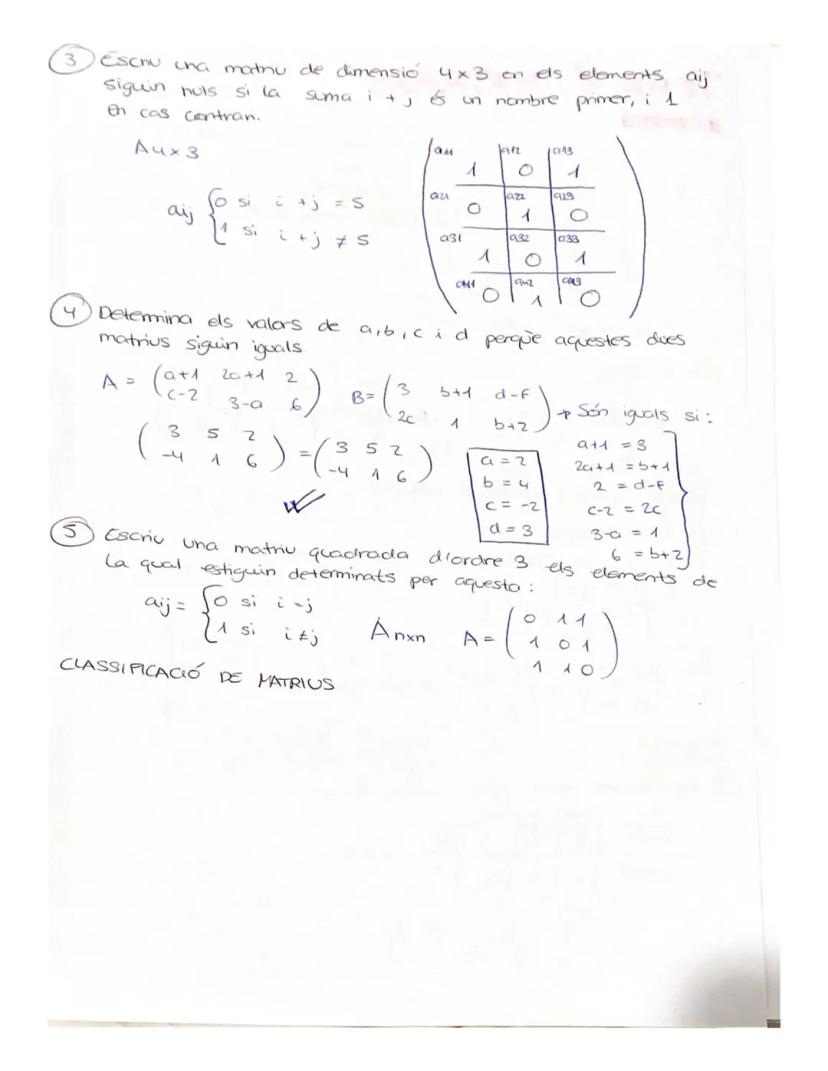 3 Escriu una matriu de dimensió 4x3 en els elements aij
siguin nuls si la suma i + j és un nombre primer, i 1
en cas contrari.
A4x3
aij { 0 si i + j = S
1 si i + j ≠ S
a11 1 a12 0 a13 1
a21 0 a22 1 a23 0
a31 1 a32 0 a33 1
a41 0 a42 1 a43 0
4 Determina els valors de a, b, c i d perquè aquestes dues
matrius siguin iguals
A = ( a+1 2a+1 2 B = ( 3 b+1 d-f
c-2 3-a 6 ) 2c 1 b+2 ) → Són iguals si:
( 3 5 2 = ( 3 5 2
-4 1 6 ) -4 1 6 )
a = 2
b = 4
c = -2
d = 3
a+1 = 3
2a+1 = b+1
2 = d-f
c-2 = 2c
3-a = 1
6 = b+2
5 Escriu una matriu quadrada d'ordre 3 els elements de
la qual estiguin determinats per aquesta:
aij = { 0 si i = j
1 si i ≠ j
Anxn A = ( 0 1 1
1 0 1
1 1 0 )
CLASSIFICACIÓ DE MATRIUS